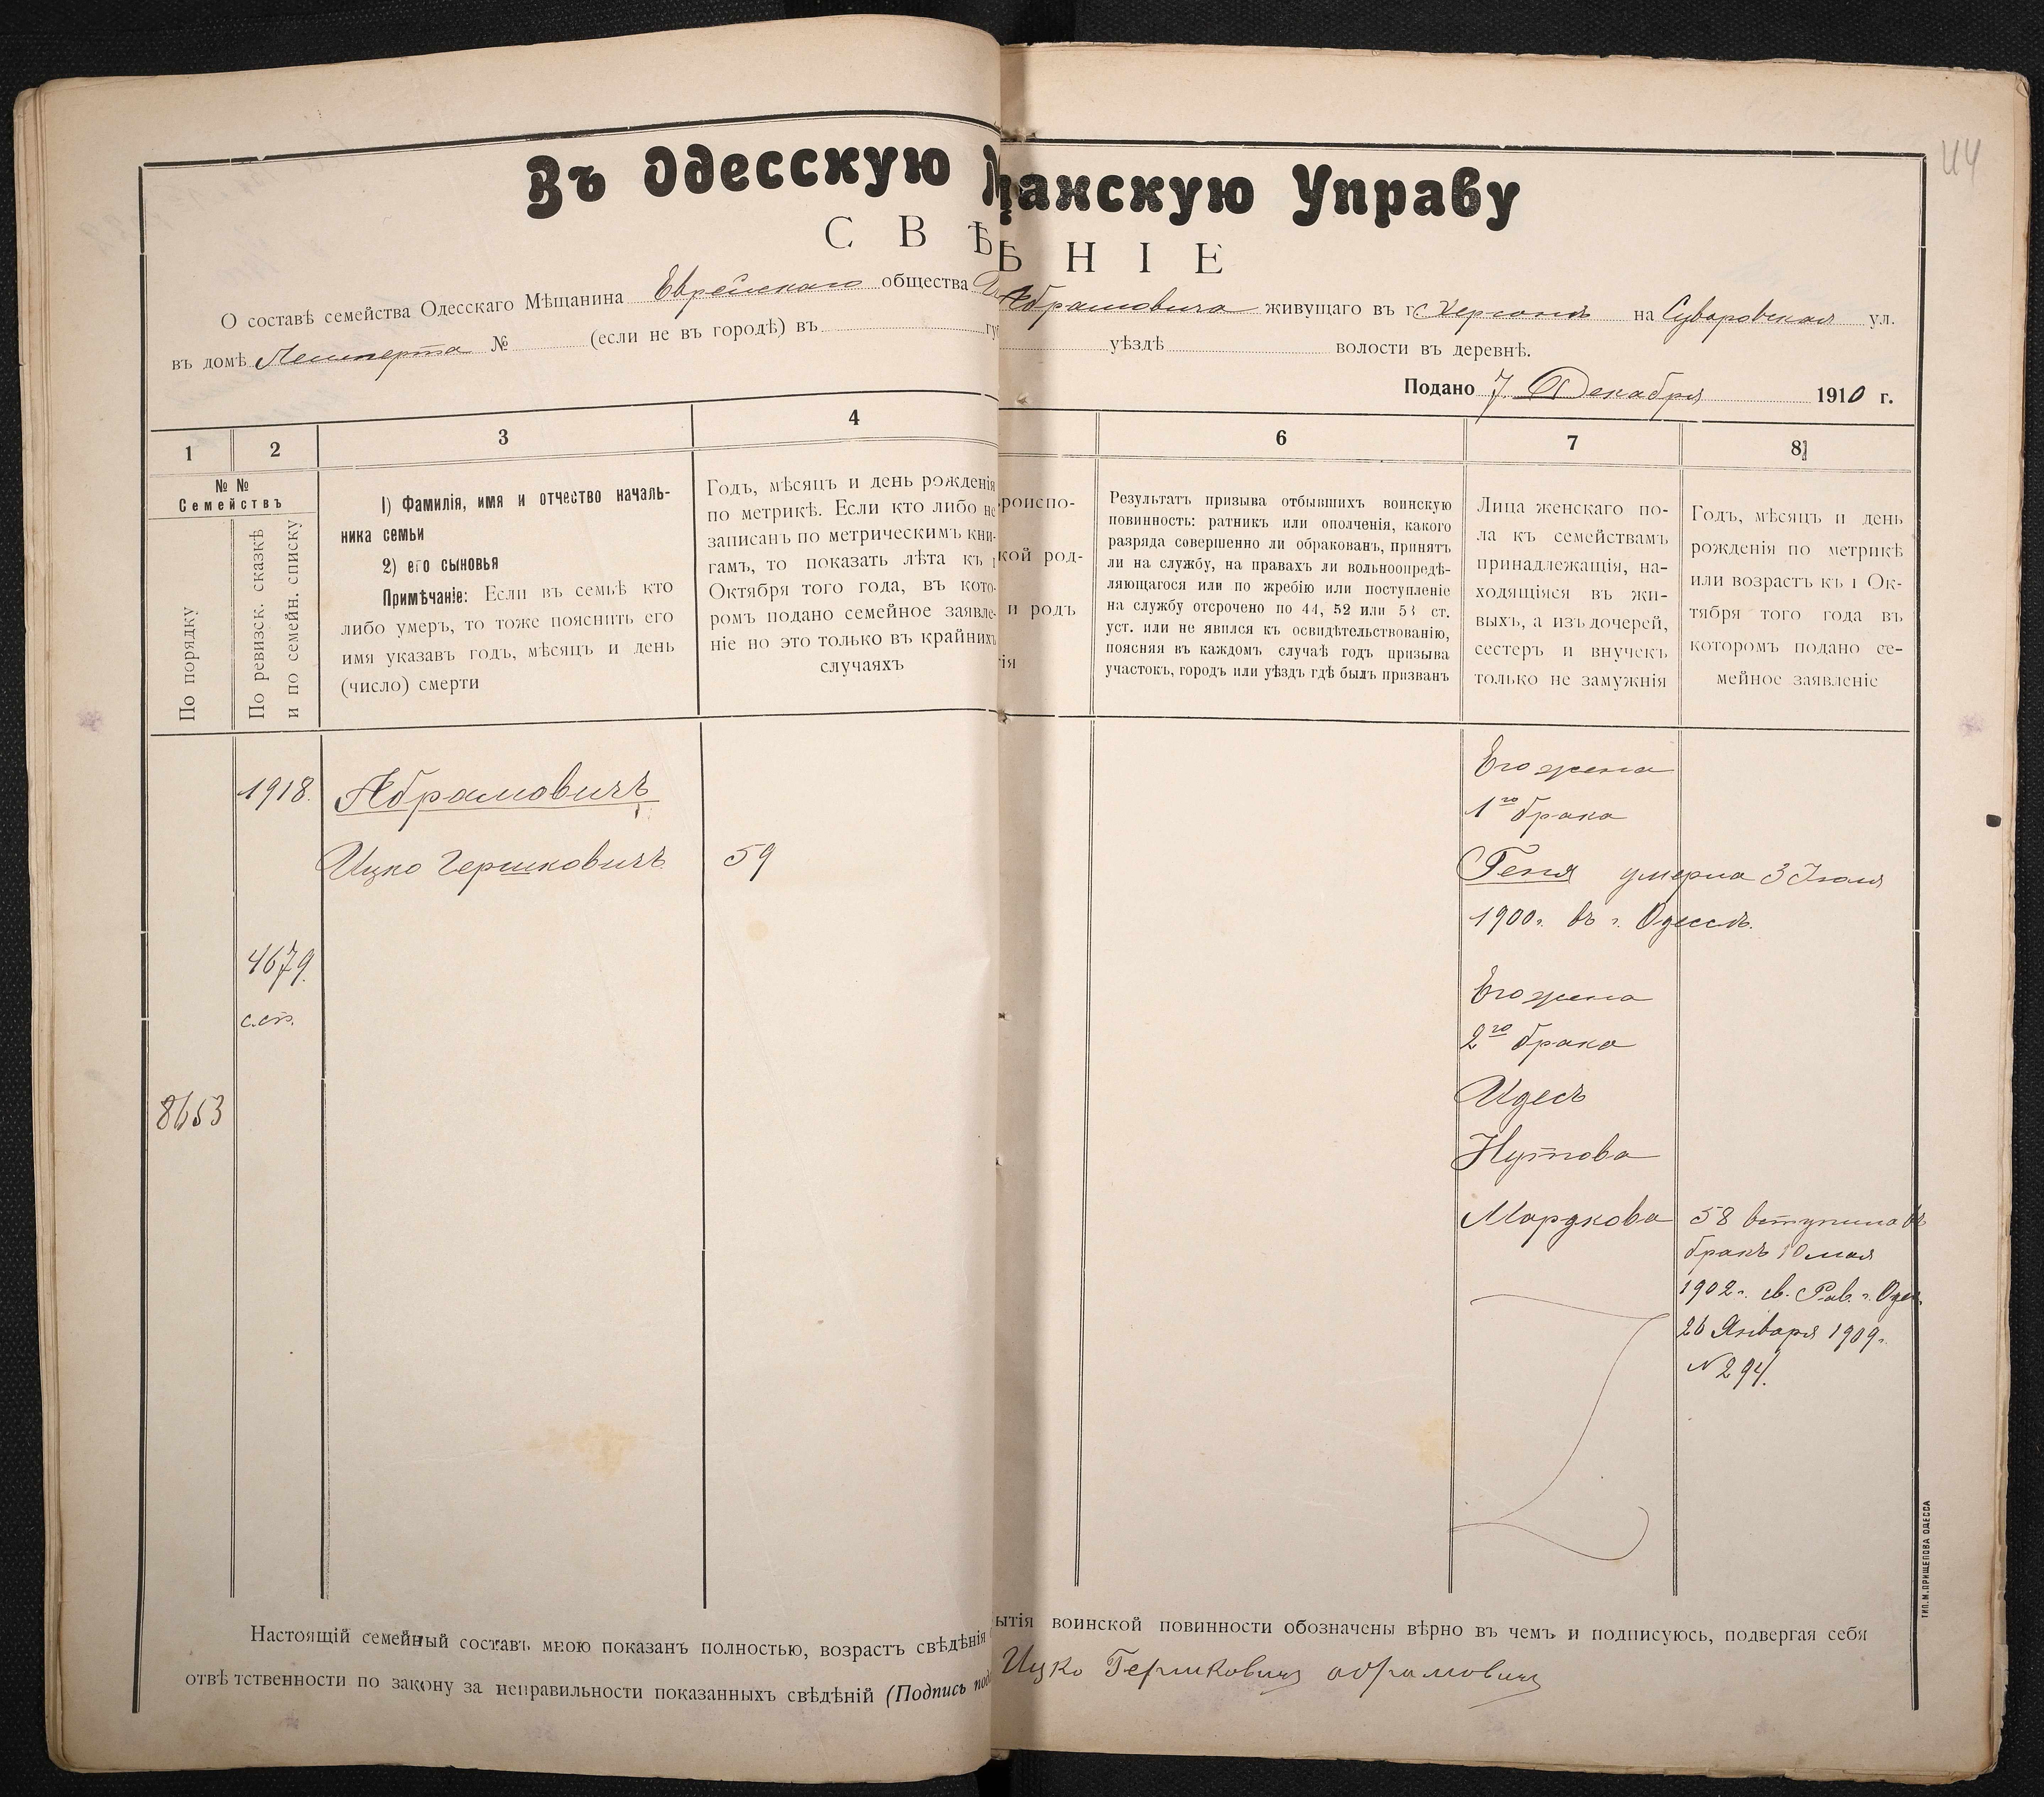 44
Въ Одесскую М щанскую Управу
СВѢ ѢНІЕ
О составѣ семейства Одесскаго Мѣщанина Еврейскаго общества Абрамовича живущаго въ г. Херсонѣ на Суворовская ул.
въ домѣ № (если не въ городѣ) въ гу уѣздѣ волости въ деревнѣ.
Подано 7 Декабря 1910 г.
1 2 3 4 6 7 8
№ №
Семействъ
По порядку
По ревизск. сказкѣ
и по семейн. списку
1) Фамилія, имя и отчество началь-
ника семьи
2) его сыновья
Примѣчаніе: Если въ семьѣ кто
либо умеръ, то тоже пояснить его
имя указавъ годъ, мѣсяцъ и день
(число) смерти
Годъ, мѣсяцъ и день рожденія
по метрикѣ. Если кто либо не
записанъ по метрическимъ кни-
гамъ, то показать лѣта къ 1
Октября того года, въ кото-
ромъ подано семейное заявле-
ніе но это только въ крайнихъ
случаяхъ
роиспо-
кой род-
и родъ
ія
Результатъ призыва отбывшихъ воинскую
повинность: ратникъ или ополченія, какого
разряда совершенно ли обракованъ, принятъ
ли на службу, на правахъ ли вольноопредѣ-
ляющагося или по жребію или поступленіе
на службу отсрочено по 44, 52 или 53 ст.
уст. или не явился къ освидѣтельствованію,
поясняя въ каждомъ случаѣ годъ призыва
участокъ, городъ или уѣздъ гдѣ былъ призванъ
Лица женскаго по-
ла къ семействамъ
принадлежащія, на-
ходящіяся въ жи-
выхъ, а изъ дочерей,
сестеръ и внучекъ
только не замужнія
Годъ, мѣсяцъ и день
рожденія по метрикѣ
или возрастъ къ 1 Ок-
тября того года въ
которомъ подано се-
мейное заявленіе
1918. Абрамовичъ
Ицко Гершковичъ 59
4679.
с.сп.
8653
Его жена
1го брака
Геня умерла 3 Іюля
1900 г. въ г. Одессѣ.
Его жена
2го брака
Идесъ
Нутова
Мордкова 58 вступила въ
бракъ 10 мая
1902 г. св. Рав. г. Одес.
26 Января 1909 г.
№ 294.
Настоящій семейный составъ мною показанъ полностью, возрастъ свѣдѣнія ытія воинской повинности обозначены вѣрно въ чемъ и подписуюсь, подвергая себя
отвѣтственности по закону за неправильности показанныхъ свѣдѣній (Подпись под Ицко Гершковичъ абрамовичъ
ТИП. М. ПРИЩЕПОВА ОДЕССА